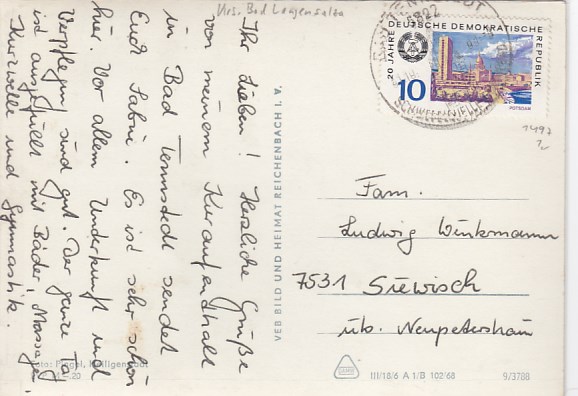 Krs. Bad Langensalza
Ihr Lieben! Herzliche Grüße
von meinem Kuraufenthalt
in Bad Tennstedt sendet
Euch Sabine. Es ist sehr schön
hier. Vor allem Unterkunft und
Verpflegung sind gut. Der ganze Tag
ist ausgefüllt mit Bäder, Massagen,
Kurzwelle und Gymnastik.
Foto: Piegel, Heiligenstadt
VEB BILD UND HEIMAT REICHENBACH I. V.
20 JAHRE DEUTSCHE DEMOKRATISCHE REPUBLIK
10
POTSDAM
5822
1497
Fam.
Ludwig Winkmann
7531 Siewisch
üb. Neupetershain
III/18/6 A 1/B 102/68
9/3788